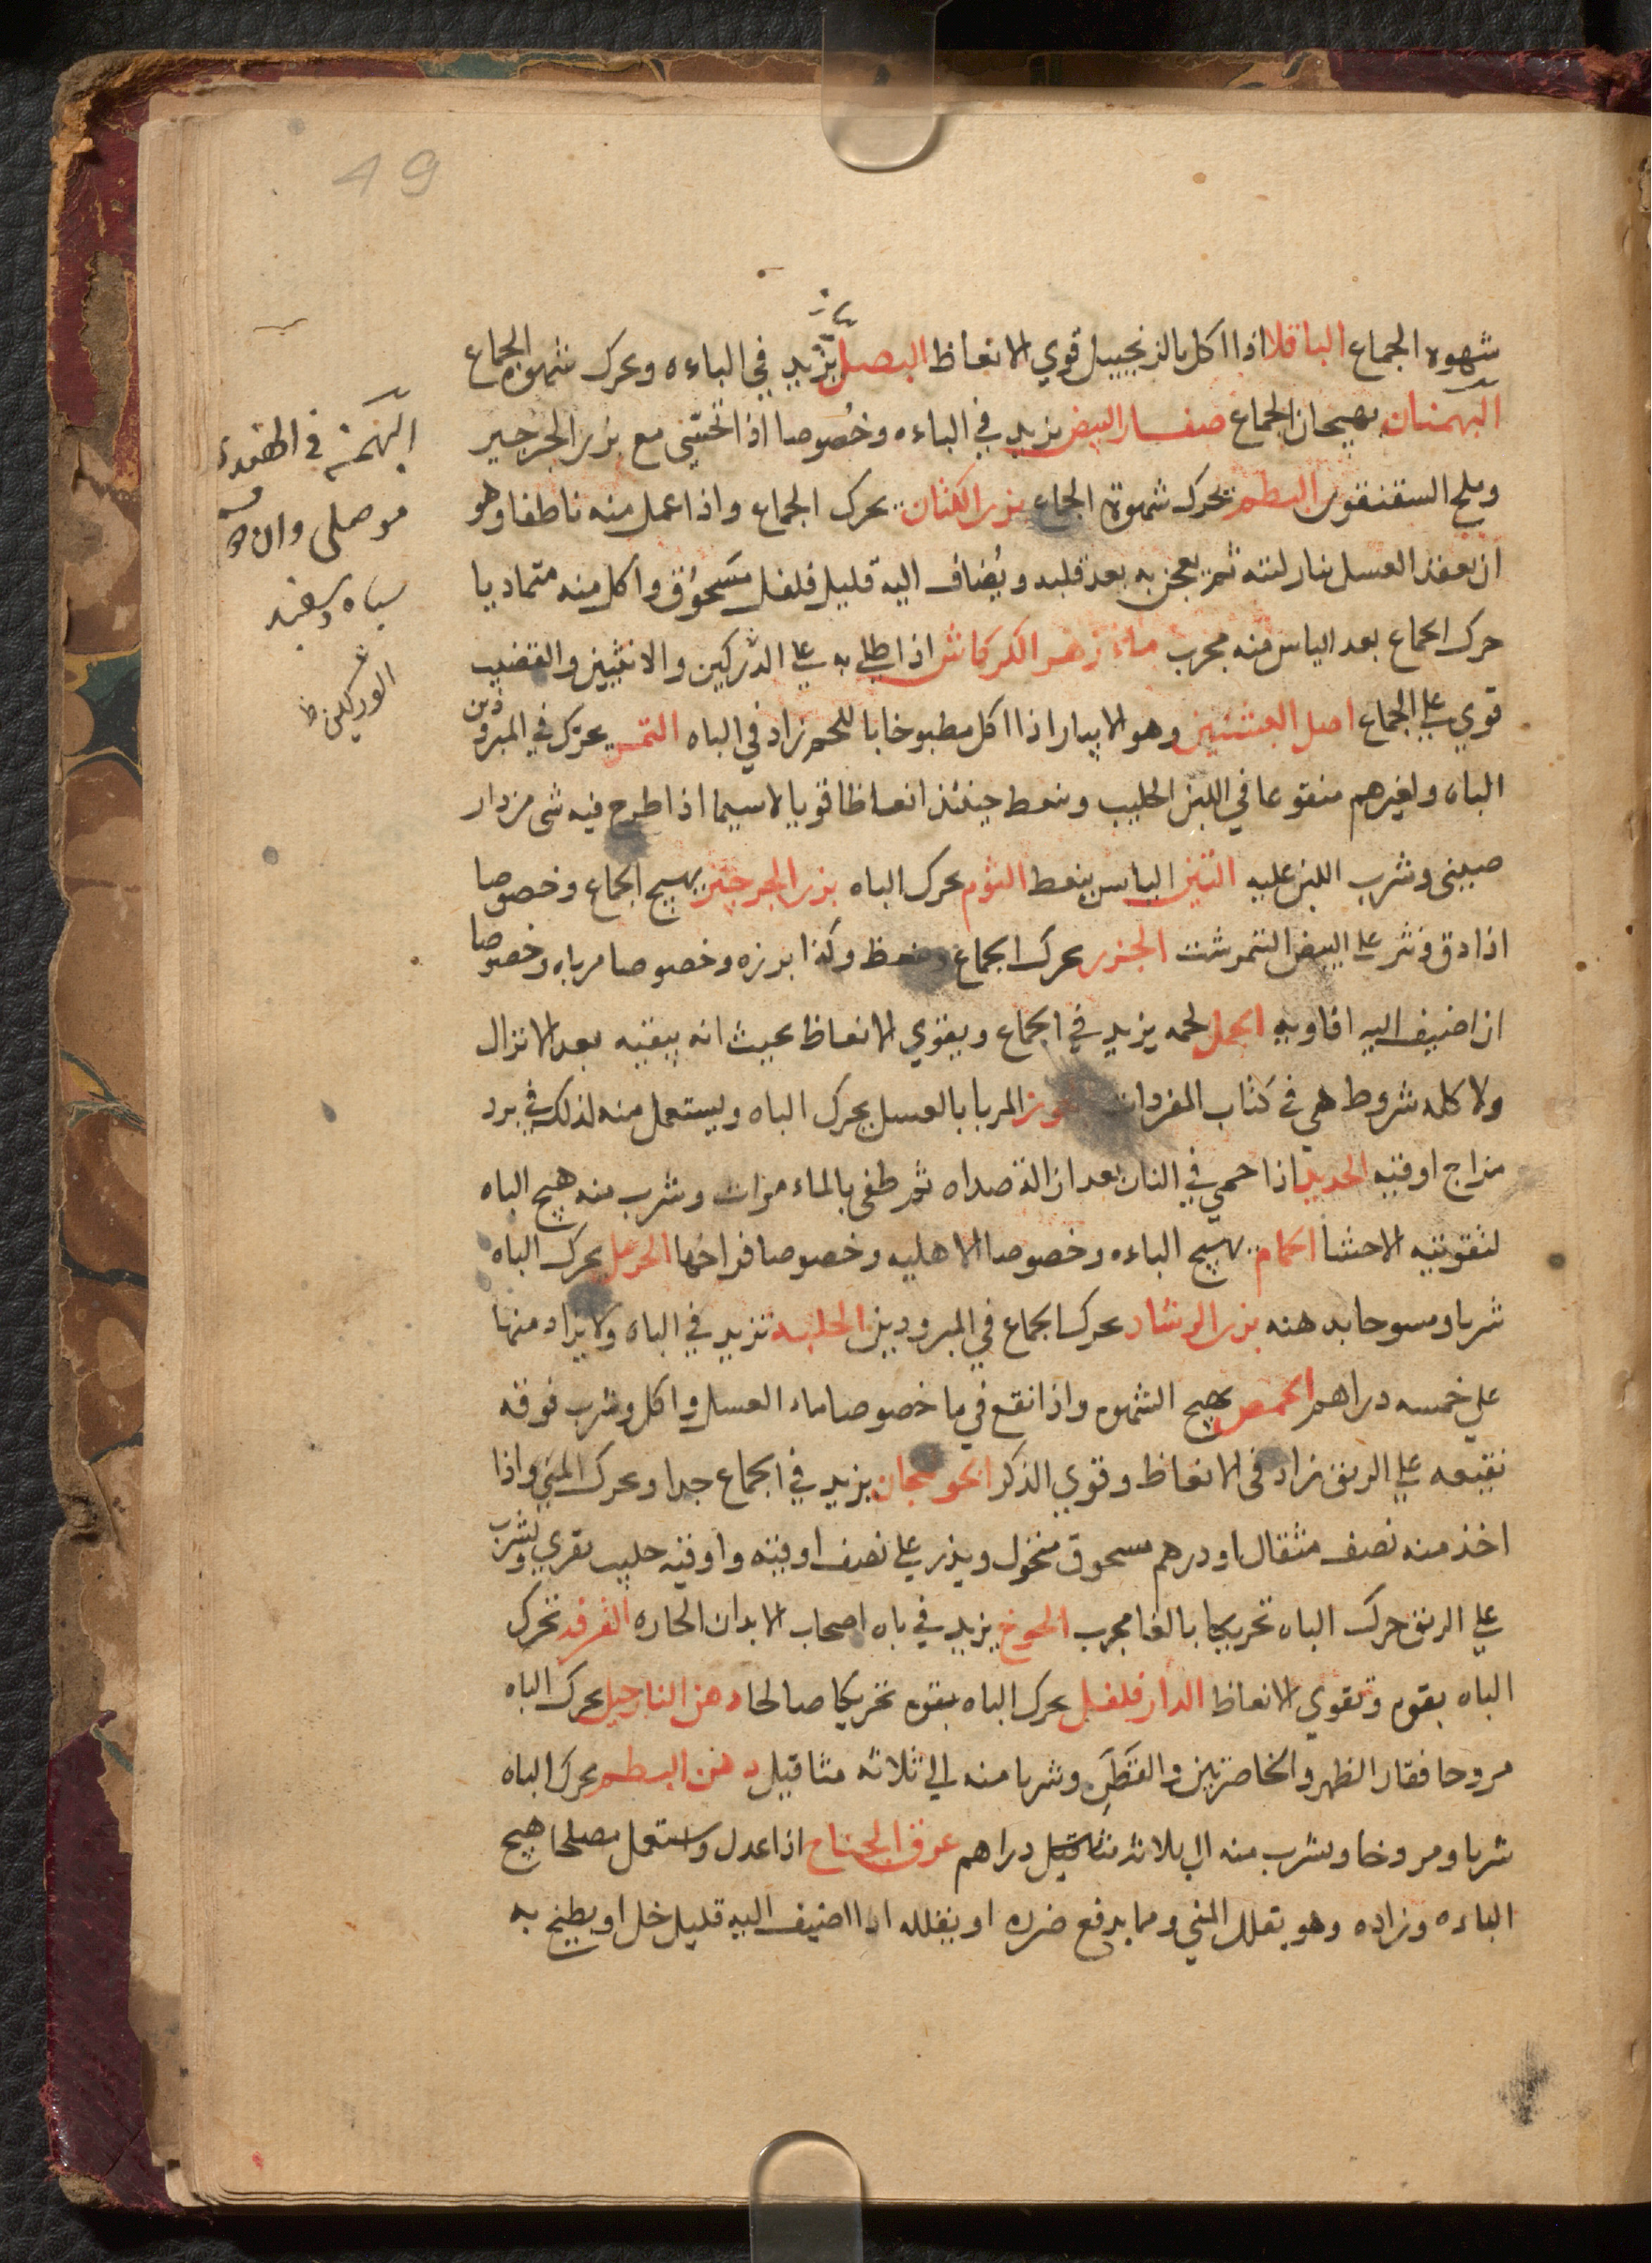 49
شهوه الجماع الباقلا اذا اكل بالزنجبيل قوي الانعاظ البصل يزيد في الباءه وحرك شهوة الجماع
البهمنان يهيجان الجماع صفار البيض يزيد في الباءه وخصوصا اذا تحسي مع بزر الجرجير
وملح السقنقور البطم تحرك شهوة الجماع بزر الكتان يحرك الجماع واذا عمل منه ناطفا وهو
ان يعقد العسل بنار لينه ثم يعجن به بعد قليه ويضاف اليه قليل فلفل مسحوق واكل منه متماديا
حرك الجماع بعد الياس منه مجرب ماء زهر الكركاش اذا طلي به علي الدركين والانثيين والقضيب
قوي علي الجماع اصل البشنين وهو الابيار اذا اكل مطبوخا باللحم زاد في الباه التمر يحرك في المبرودين
الباه ولغيرهم منقوعا في اللبن الحليب وينعط حينئذ انعاظا قويا لاسيما اذا طرح فيه شي من دار
صيني وشرب اللبن عليه التين اليابس ينعط الثوم يحرك الباه بزر الجرجير يهيج الجماع وخصوصا
اذا دق ونثر علي البيض النمرشت الجزر يحرك الجماع وينعظ وكذا بزره وخصوصا مرباه وخصوصا
ان اضيف اليه افاويه الجمل لحمه يزيد في الجماع ويقوي الانعاظ بحيث انه يبقيه بعد الانزال
ولاكله شروط هي في كتاب المفردات الجوز المربا بالعسل يحرك الباه ويستعمل منه لذلك في برد
مزاج اوقيه الحديد اذا حمي في النار بعد ازالة صداه ثم طفي بالماء مرات وشرب منه هيج الباه
لتقويته الاحشا الحمام يهيج الباءه وخصوصا الاهليه وخصوصا فراخها الحرمل يحرك الباه
شربا ومسوحا بدهنه بزر الرشاد يحرك الجماع في المبرودين الحلبه تزيد في الباه ولا يزاد منها
علي خمسه دراهم الحمص يهيج الشهوه واذا نقع في ما خصوصا ماء العسل واكل وشرب فوقه
نقيعه علي الريق زاد في الانعاظ وقوي الذكر الخولنجان يزيد في الجماع جدا ويحرك المني واذا
اخذ منه نصف مثقال او درهم مسحوق منخول ويذر علي نصف اوقيه واوقيه حليب بقري وشرب
علي الريق حرك الباه تحريكا بالغا مجرب الخوخ يزيد في باه اصحاب الابدان الحاره القرفه تحرك
الباه بقوه وتقوي الانعاظ الدار فلفل يحرك الباه بقوه تحريكا صالحا دهن النارجيل يحرك الباه
مروخا فقار الظهر والخاصرتين والقطن وشربا منه الي ثلاثه مثاقيل دهن البطم يحرك الباه
شربا ومروخا ويشرب منه الي ثلاثه مثاقيل دراهم عرق الجناح اذا عدل واستعمل مصلحا هيج
الباءه وزاده وهو يقلل المني ومما يدفع ضرره او يقلله اذا اضيف اليه قليل خل او يطبخ به
البهمن في
موصلي
سياه وسفيد
الوركين ظ